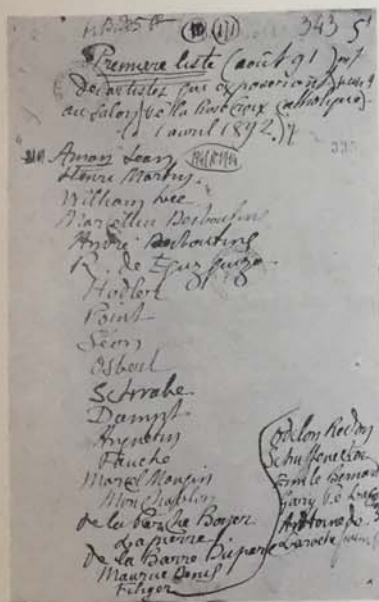 343 5
Première liste (août 91)
Des artistes qui exposeront
au Salon de la Rose Croix Catholique
1 avril 1892.
Aman Jean
Henri Martin.
William Lee
Marcellin Desboutins
André Desboutins
R. de Egusquiza
Hodler
Point
Séon
Osbert
Schwabe
Dampt
Anquetin
Fauche
Marcel Mangin
Monchablon
de la Perche Boyer
Lapierre
de la Barre Duparc
Maurice Denis
Filiger
Odilon Redon
Schuffenecker
Emile Bernard
Gary
Antoine
Laroche